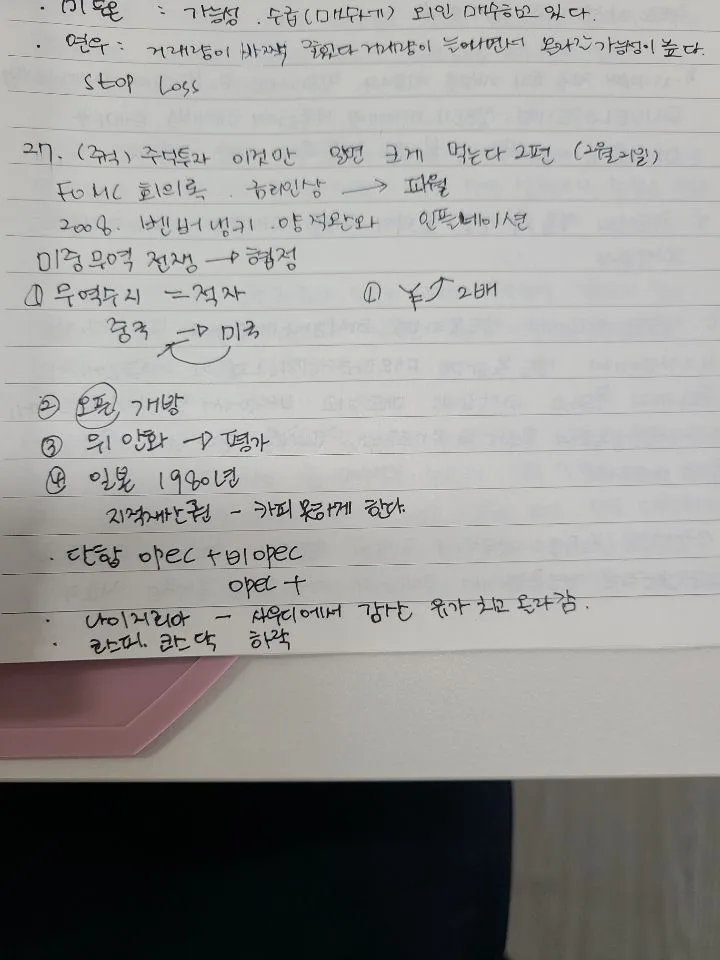 : 가능성. 수급(매수세) 외인 매수하고 있다.
· 연우 : 거래량이 바짝 줄었다 거래량이 늘어나면서 올라갈 가능성이 높다.
Stop Loss
27. (주식) 주식투자 이것만 알면 크게 먹는다 2편 (2월21일)
FOMC 회의록. 금리인상 → 파월
2008. 벤버냉키. 양적완화 인플레이션
미중무역 전쟁 → 협정
① 무역수지 = 적자 ① ¥ 2배
중국 → 미국
② 오픈 개방
③ 위안화 → 평가
④ 일본 1980년
지적재산권 - 카피 못하게 한다.
· 단합 opec + 비opec
opec +
· 나이지리아 - 사우디에서 감산 유가 최고 올라감.
· 코스피. 코스닥 하락